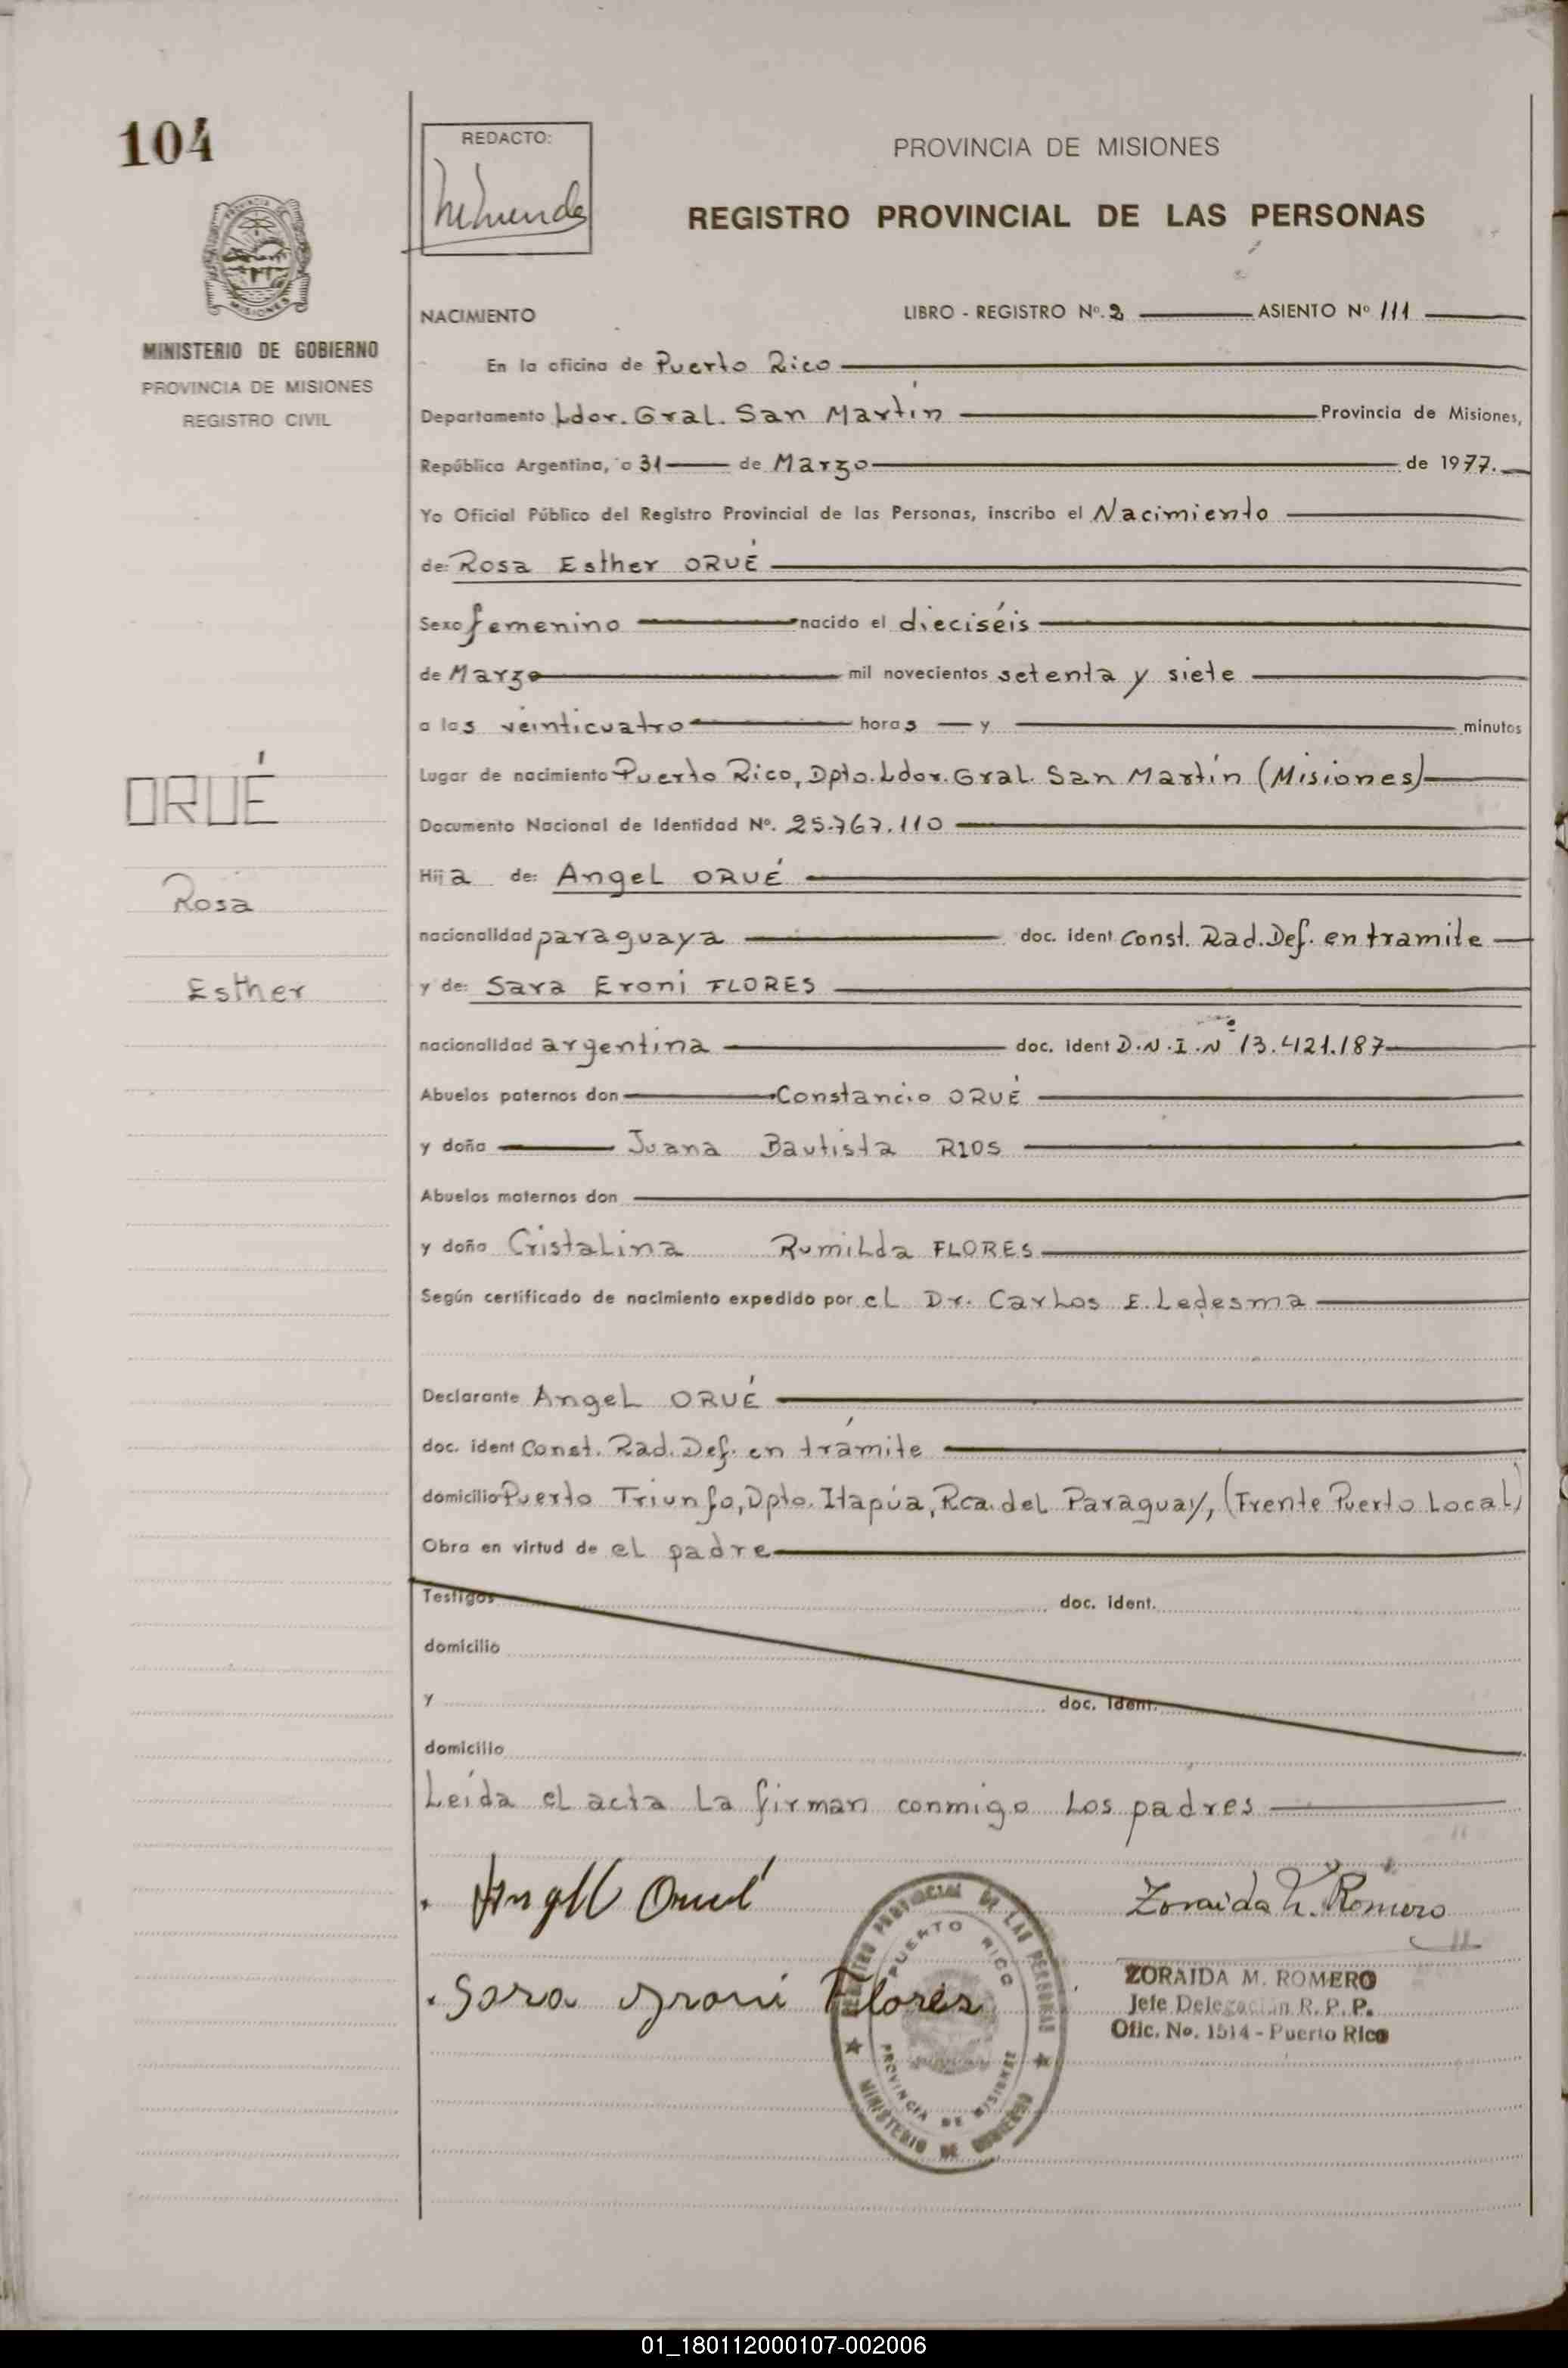 104
REDACTO:
PROVINCIA DE MISIONES
REGISTRO PROVINCIAL DE LAS PERSONAS
PROVINCIA DE
MISIONES
MINISTERIO DE GOBIERNO
PROVINCIA DE MISIONES
REGISTRO CIVIL
NACIMIENTO LIBRO - REGISTRO Nº. 2 ASIENTO Nº 111
En la oficina de Puerto Rico
Departamento Ldor. Gral. San Martín Provincia de Misiones,
República Argentina, a 31 de Marzo de 1977.
Yo Oficial Público del Registro Provincial de las Personas, inscribo el Nacimiento
de: Rosa Esther ORUÉ
Sexo femenino nacido el dieciséis
de Marzo mil novecientos setenta y siete
a las veinticuatro horas y minutos
Lugar de nacimiento Puerto Rico, Dpto. Ldor. Gral. San Martín (Misiones)
Documento Nacional de Identidad Nº. 25.767.110
Hija de: Angel ORUÉ
nacionalidad paraguaya doc. ident Const. Rad. Def. en tramite
y de: Sara Eroni FLORES
nacionalidad argentina doc. ident D.N.I.Nº 13.421.187
Abuelos paternos don Constancio ORUÉ
y doña Juana Bautista RIOS
Abuelos maternos don
y doña Cristalina Rumilda FLORES
Según certificado de nacimiento expedido por el Dr. Carlos E. Ledesma
Declarante Angel ORUÉ
doc. ident Const. Rad. Def. en trámite
domicilio Puerto Triunfo, Dpto. Itapúa, Rca. del Paraguay, (Frente Puerto Local)
Obra en virtud de el padre
Testigos doc. ident.
domicilio
y doc. ident.
domicilio
Leída el acta la firman conmigo los padres
ORUÉ
Rosa
Esther
Angel Orué
Sara Eroni Flores
REGISTRO PROVINCIAL DE LAS PERSONAS
PUERTO RICO
PROVINCIA DE MISIONES
MINISTERIO DE GOBIERNO
Zoraida M. Romero
ZORAIDA M. ROMERO
Jefe Delegación R. P. P.
Ofic. No. 1514 - Puerto Rico
01_180112000107-002006